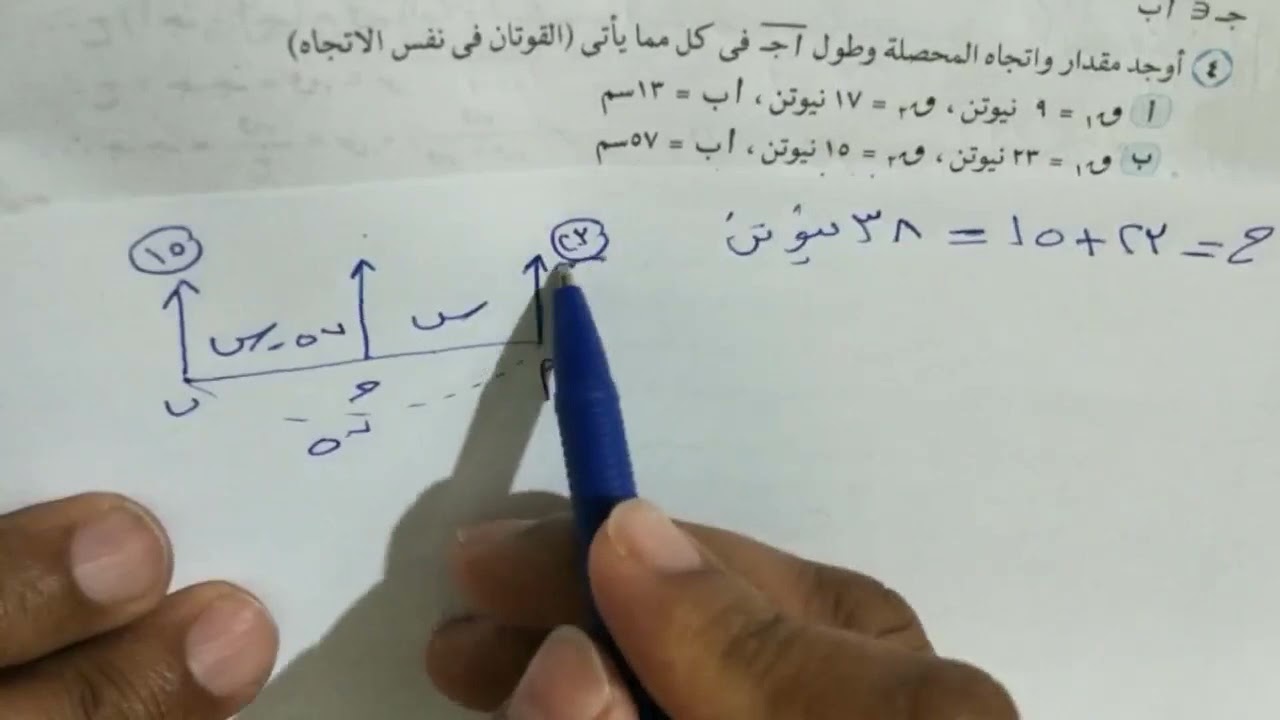 جـ ∋ اب
٤ أوجد مقدار واتجاه المحصلة وطول اجـ فى كل مما يأتى (القوتان فى نفس الاتجاه)
أ ق١ = ٩ نيوتن، ق٢ = ١٧ نيوتن، اب = ١٣سم
ب ق١ = ٢٣ نيوتن، ق٢ = ١٥ نيوتن، اب = ٥٧سم
ح = ٢٣ + ١٥ = ٣٨ نيوتن
٢٣ ١٥
س ٥٧-س
ا جـ ب
٥٧